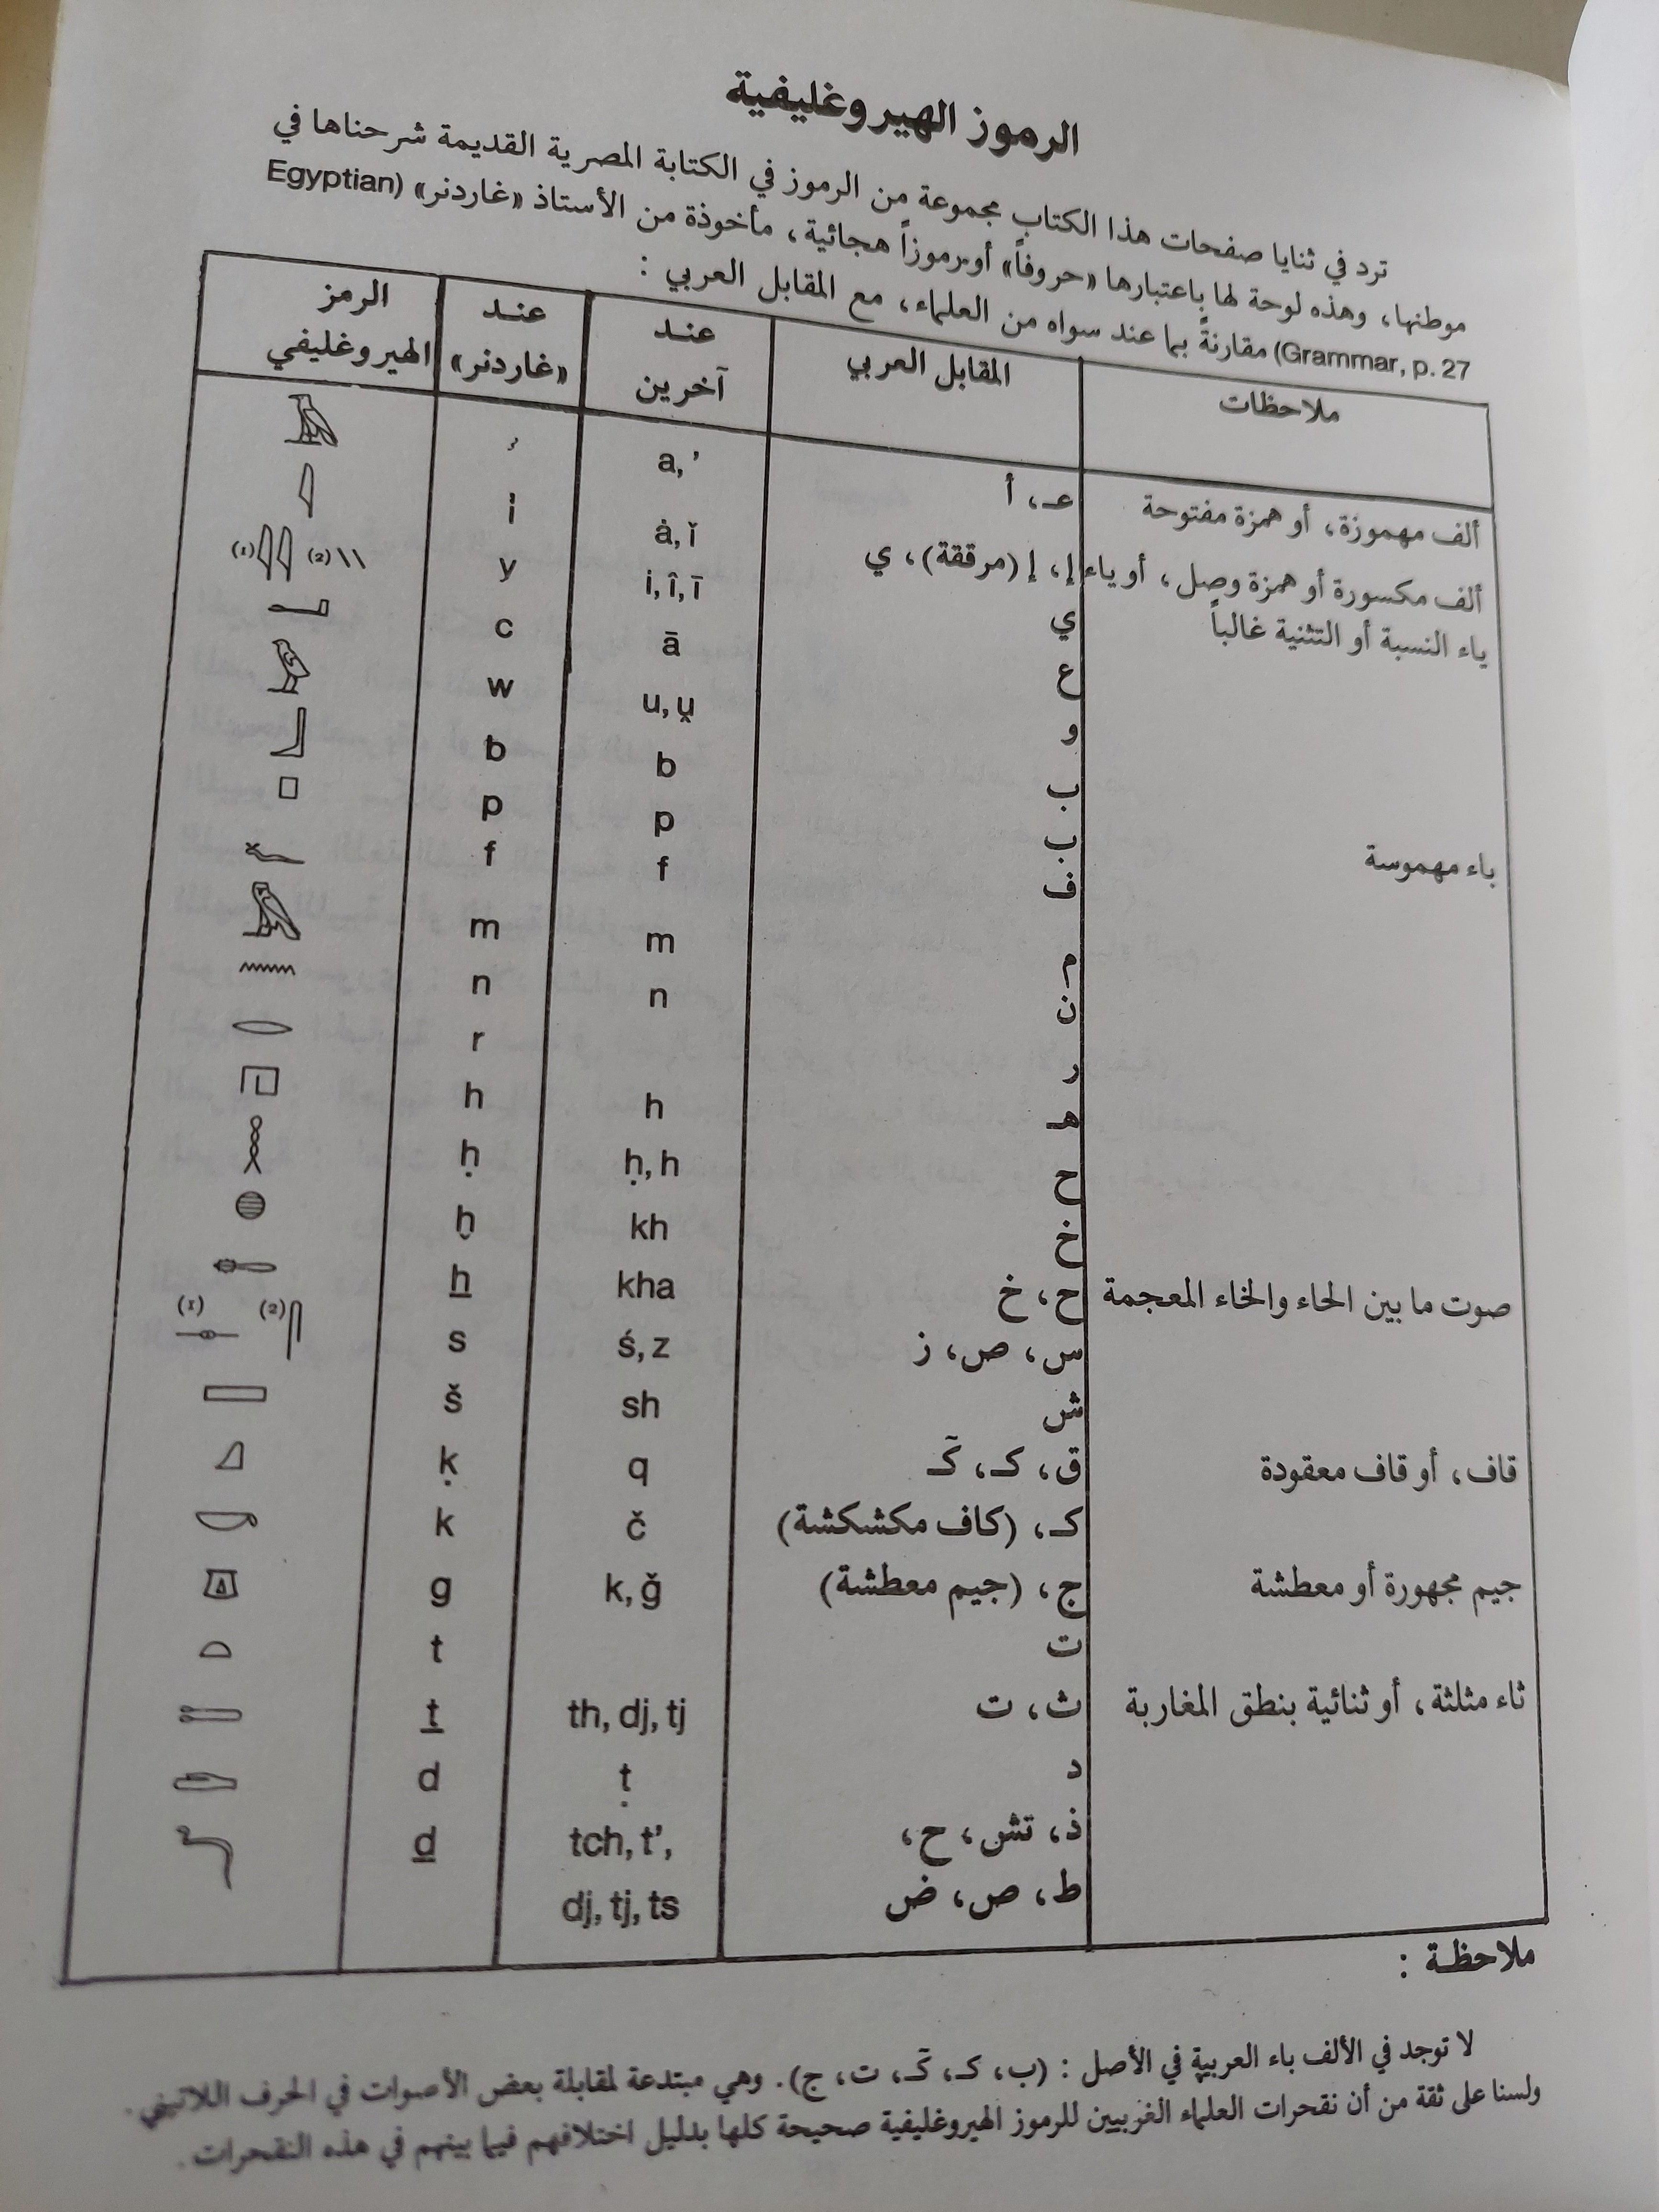 الرموز الهيروغليفية
ترد في ثنايا صفحات هذا الكتاب مجموعة من الرموز في الكتابة المصرية القديمة شرحناها في
موطنها، وهذه لوحة لها باعتبارها «حروفاً» أو رموزاً هجائية، مأخوذة من الأستاذ «غاردنر» (Egyptian
Grammar, p. 27) مقارنةً بما عند سواه من العلماء، مع المقابل العربي :
ملاحظات | المقابل العربي | عند آخرين | عند «غاردنر» | الرمز الهيروغليفي
ألف مهموزة، أو همزة مفتوحة | عـ، أ | a, ’ | ꜣ
ألف مكسورة أو همزة وصل، أو ياء | إ، إ (مرققة)، ي | ȧ, ǐ | i
ياء النسبة أو التثنية غالباً | ي | i, î, ī | y | (1) (2)
ع | ā | c
و | u, u̯ | w
ب | b | b
باء مهموسة | ب | p | p
ف | f | f
م | m | m
ن | n | n
ر | r
هـ | h | h
ح | ḥ, h | ḥ
خ | kh | ḫ
صوت ما بين الحاء والخاء المعجمة | ح، خ | kha | ẖ
س، ص، ز | ś, z | s | (1) (2)
ش | sh | š
قاف، أو قاف معقودة | ق، كـ، گـ | q | ḳ
كـ، (كاف مكشكشة) | č | k
جيم مجهورة أو معطشة | ج، (جيم معطشة) | k, ğ | g
ت | t
ثاء مثلثة، أو ثنائية بنطق المغاربة | ث، ت | th, dj, tj | ṯ
د | ṭ | d
ذ، تش، ح، | tch, t’, | ḏ
ط، ص، ض | dj, tj, ts
ملاحظة :
لا توجد في الألف باء العربية في الأصل : (ب، كـ، گـ، ت، ج). وهي مبتدعة لمقابلة بعض الأصوات في الحرف اللاتيني.
ولسنا على ثقة من أن نقحرات العلماء الغربيين للرموز الهيروغليفية صحيحة كلها بدليل اختلافهم فيما بينهم في هذه النقحرات.